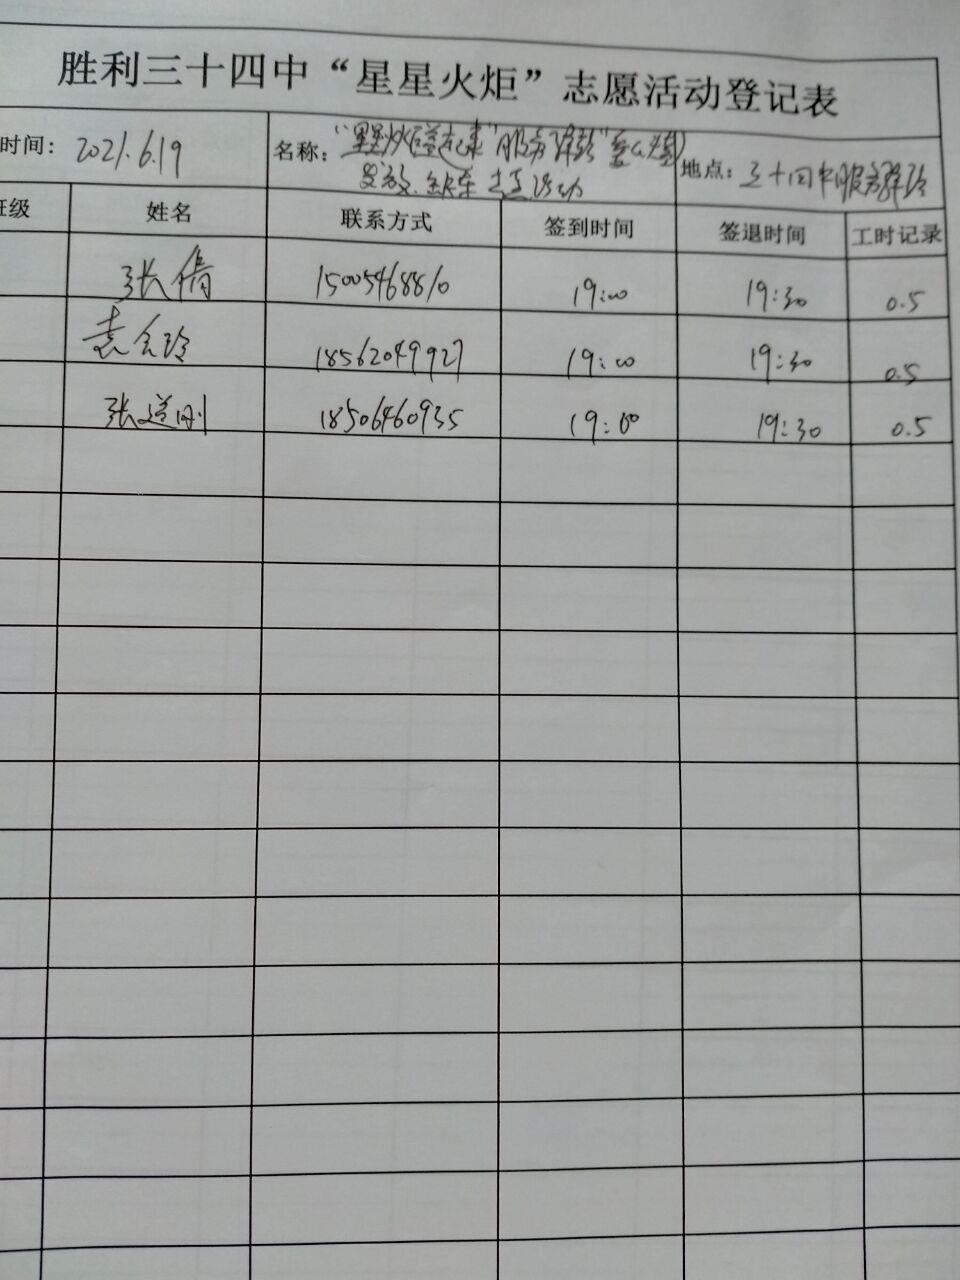 胜利三十四中“星星火炬”志愿活动登记表
时间: 2021.6.19 名称: 地点: 三十四中服务驿站
班级 姓名 联系方式 签到时间 签退时间 工时记录
张倩 15005468810 19:00 19:30 0.5
袁会玲 18562049927 19:00 19:30 0.5
张道刚 18506460935 19:00 19:30 0.5